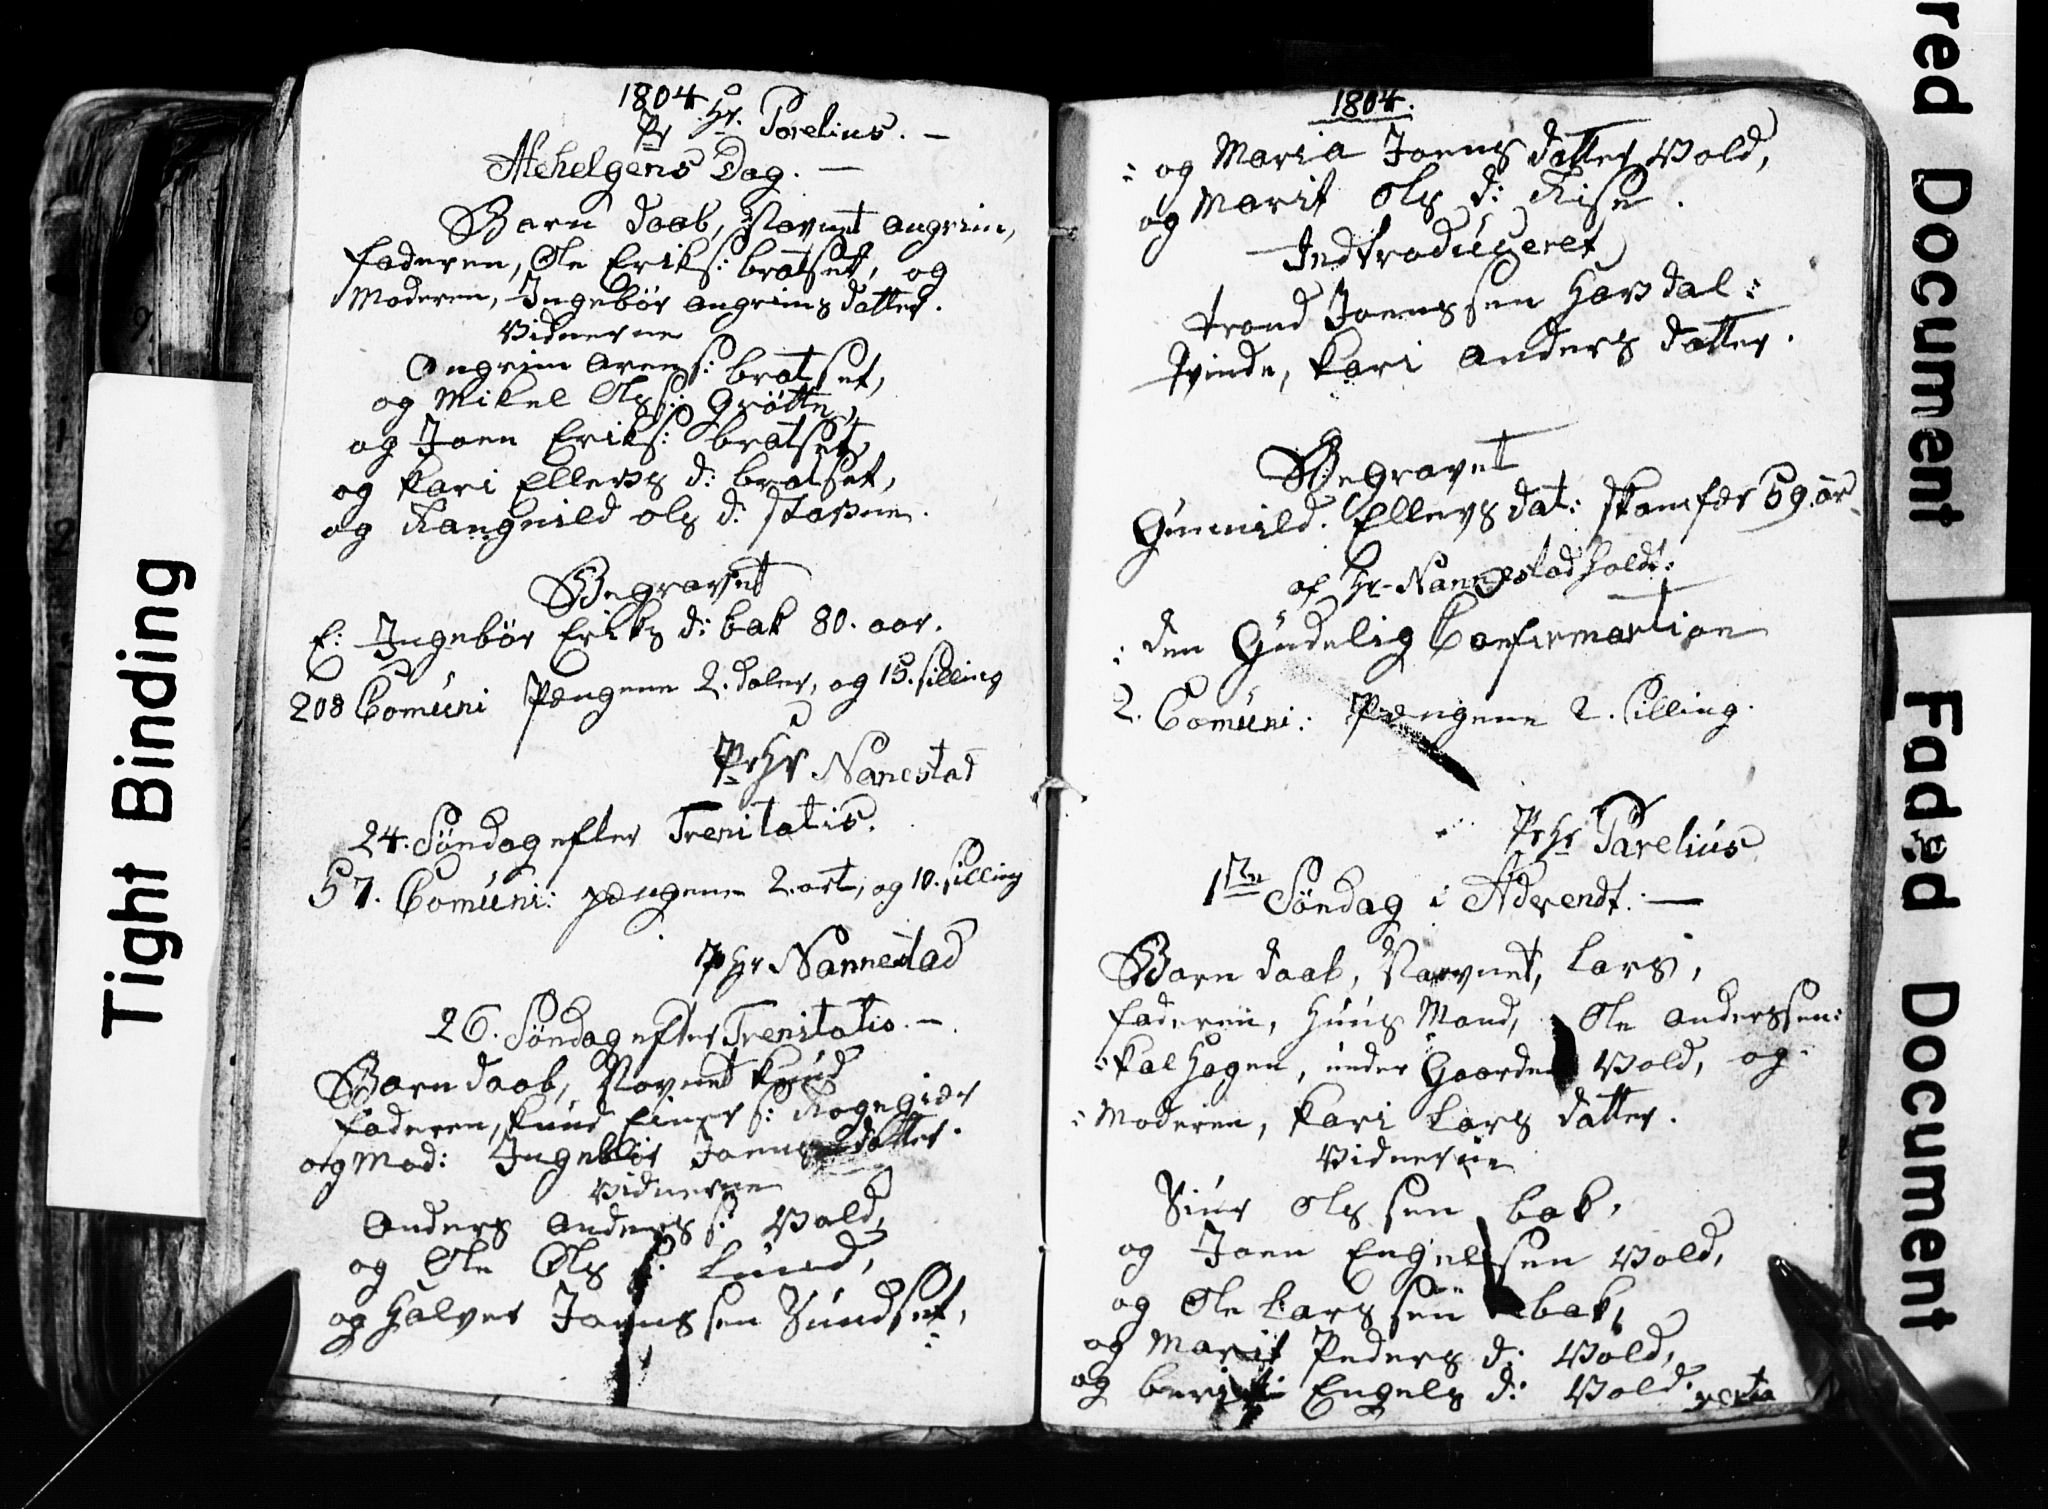 1804.
Pr Hr. Parelius. —
Alehelgens Dag. —
Barn daab, Navnet Angrim,
faderen, Ole Eriks: bratset, og
Moderen, Ingebör Angrims datter.
Vidnerne
Angrim Arens: bratset,
og Mikel Ols: Grötte,
og Joen Eriks: bratset,
og Kari Ellevs d: bratset,
og Rangnild Ols d.
Begravet
E: Ingebör Eriks d: bak 80. aar.
208 Comúni Pengene 2. daler, og 15. silling
Pr Hr Nanestad
24. Söndag efter Trenitatis.
57. Comúni: pengene 2. ort, og 10. silling
P Hr Nannestad
26. Söndag efter Trenitatis. —.
Barn daab, Navnet Knúd
faderen, Knúd Einer s:
og Mod: Ingebör Joens datter.
Vidnerne
Anders Anders s: Vold,
og Ole Ols s: Lúnd,
og Halver Joens sen Súndset,
1804.
: og Maria Joens datter Vold,
og Marit Ols d: Rise.
Indtrodúceret
trond Joenssen Havdal:
Qvinde, Kari Anders datter.
Begravet
Gunnild. Ellevs dat: skamfer 59. ar
af Hr. Nannestad holdt:
: den Gúdelig Confirmartion
2. Comúni: Pengene 2. silling.
Pr Hr Parelius
1ste Söndag i Advendt. —
Barn daab, Navnet, Lars,
faderen, Húús Mand, Ole Anderssen:
: kal hagen, únder Gaarden Vold, og
: Moderen, Kari Lars datter.
Vidnerne
Siúr Ols sen bak,
og Joen Engelssen Vold,
og Ole Lars sen bak,
og Marit Peders d: Vold,
og berit Engels d: Vold. verta
Tight Binding
red Document
Faded Document